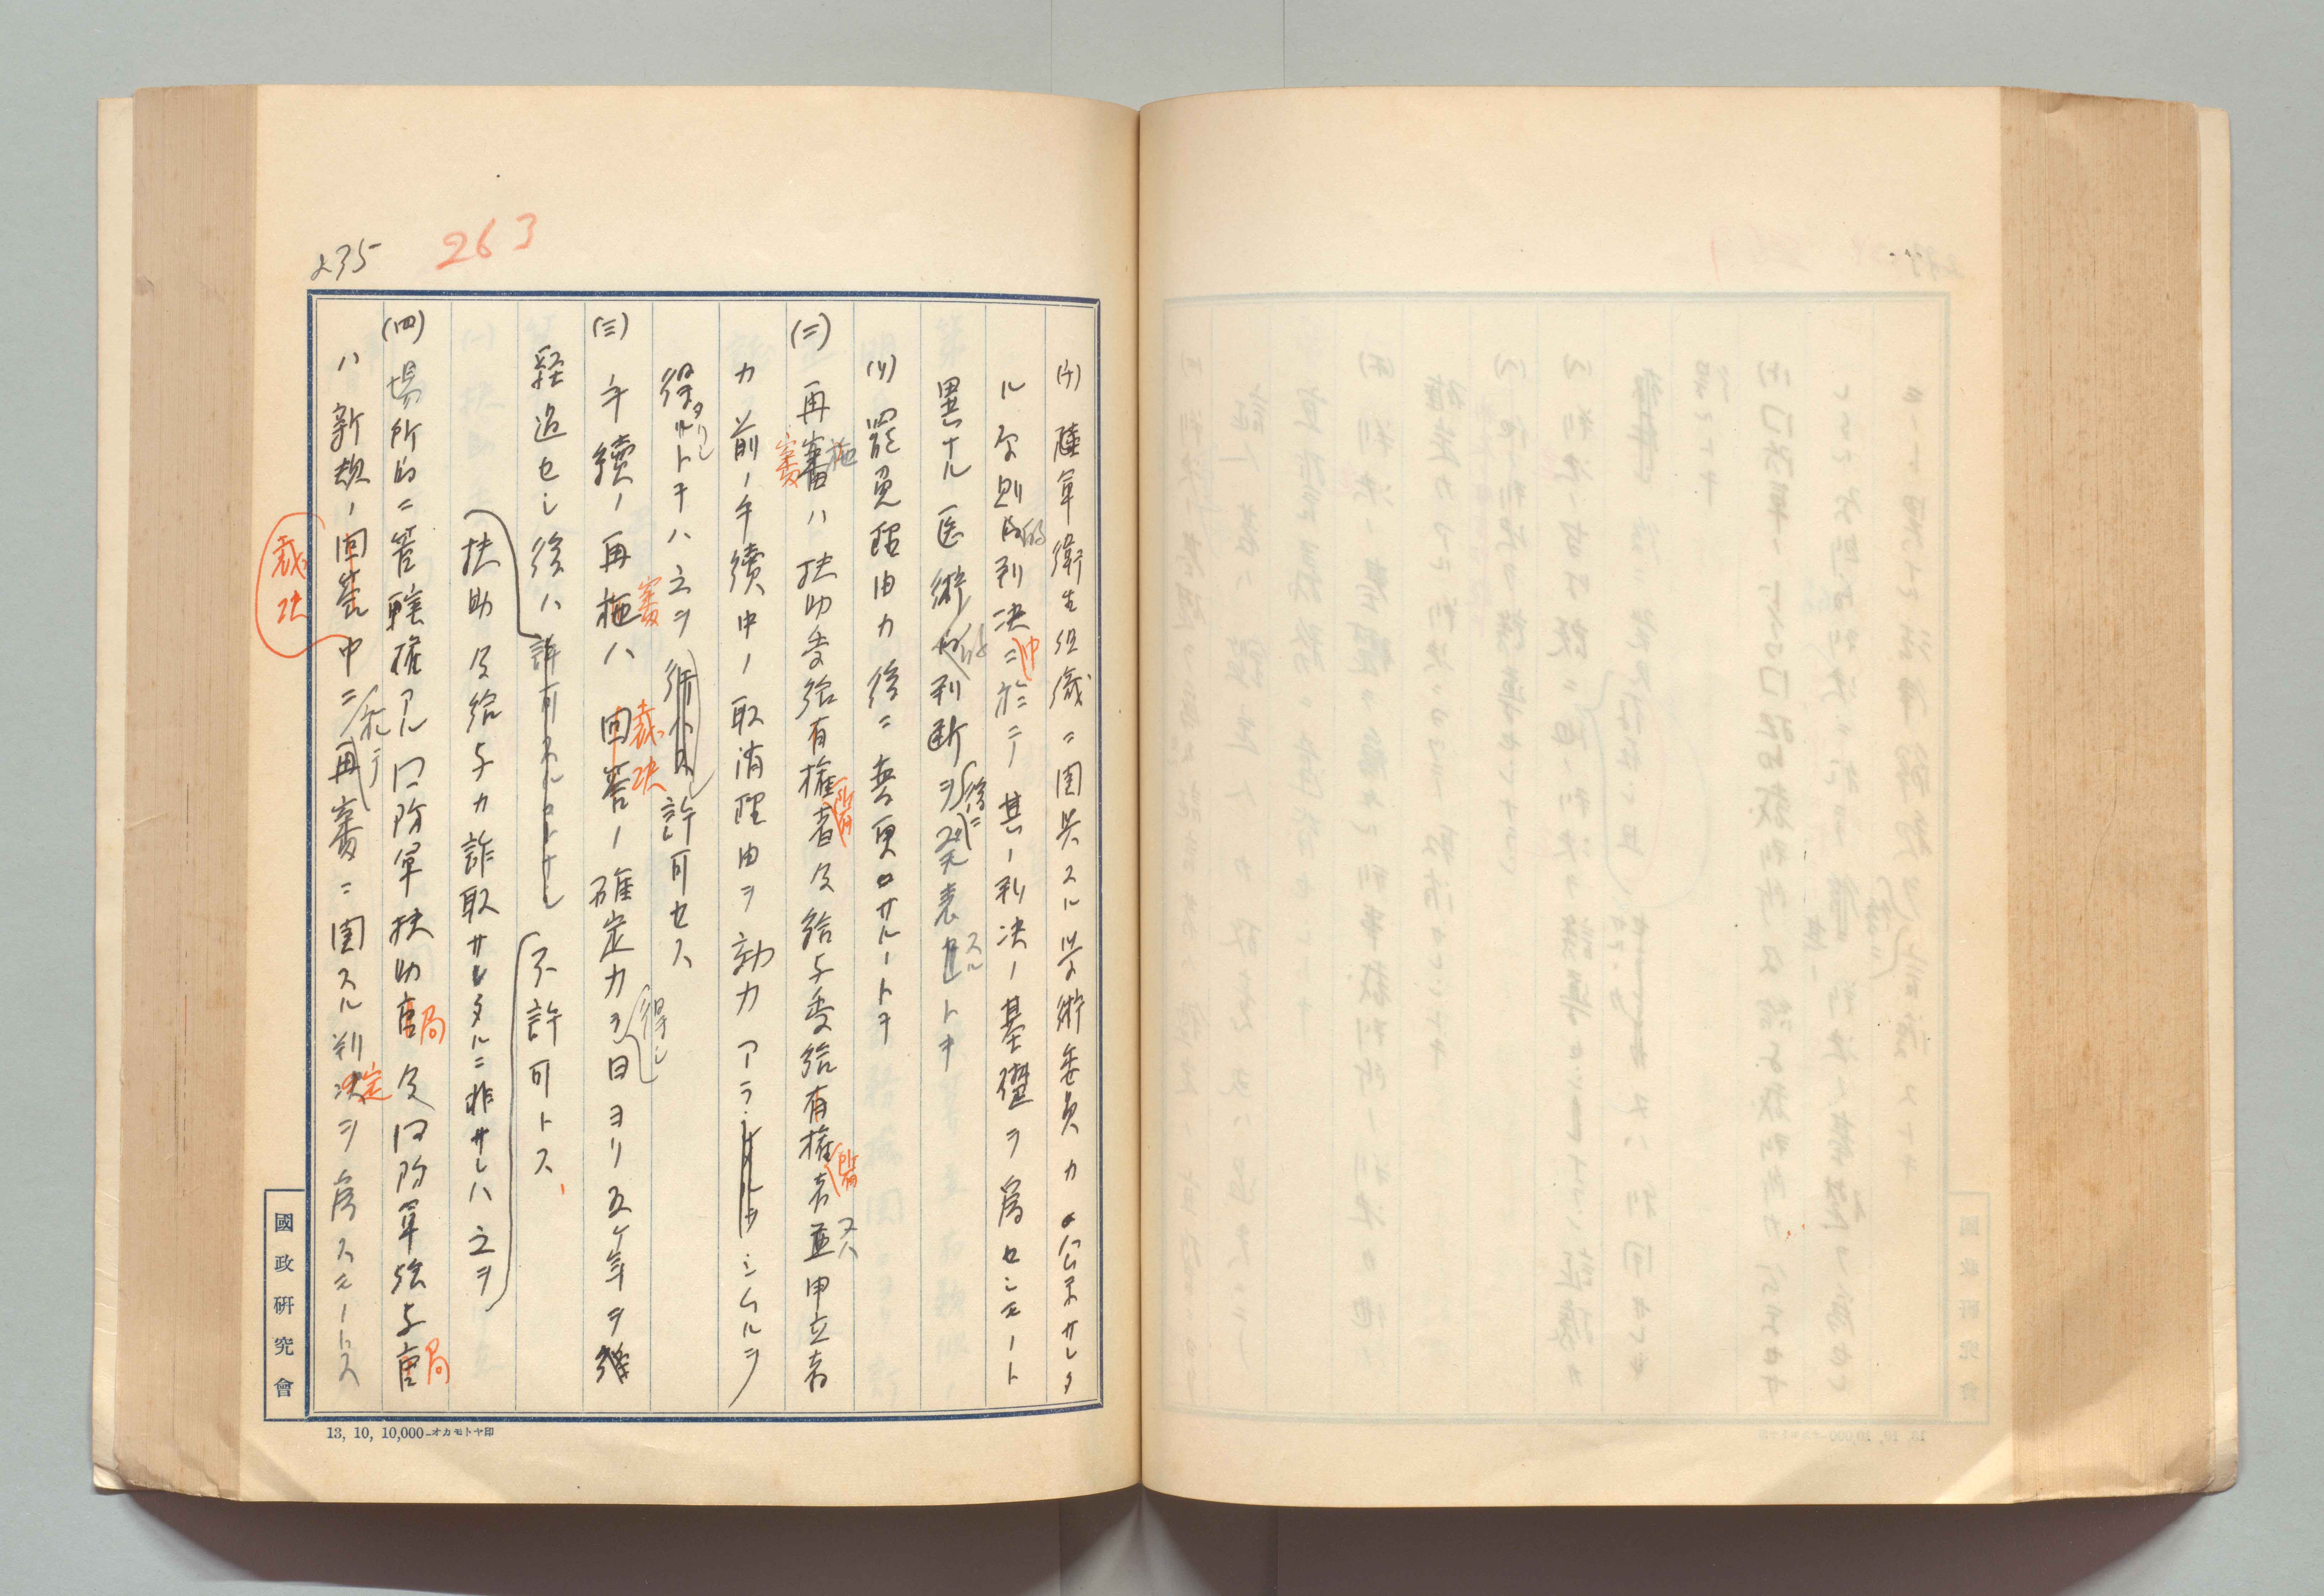 263
235
(チ)陸軍衛生組織ニ関係スル学術委員カ公示サレタ
ル原則的判決ニ於テ其ノ判決ノ基礎ヲ為セシモノト
異ナル医術的判断ヲ後ニ発表スルトキ
(リ)罷免理由カ後ニ喪更サルルトキ
(二)再審ハ扶助受給有権者及給与受給有権者又ハ申立者
カ前ノ手続中ノ取消理由ヲ効力アラシムルヲ
得タリシトキハ之ヲ許可セス
(三)手続ノ再審ハ裁決ノ確定力ヲ得シ日ヨリ五ケ年ヲ
経過セシ後ハ
扶助及給与カ詐取サレタルニ非サレハ之ヲ
不許可トス、
(四)場所的ニ管轄権アル口防軍扶助局及口防軍給与局
ハ新規ノ裁決中ニ於テ再審ニ関スル判定ヲ為スモノトス
國政研究會
13, 10, 10,000-オカモトヤ印